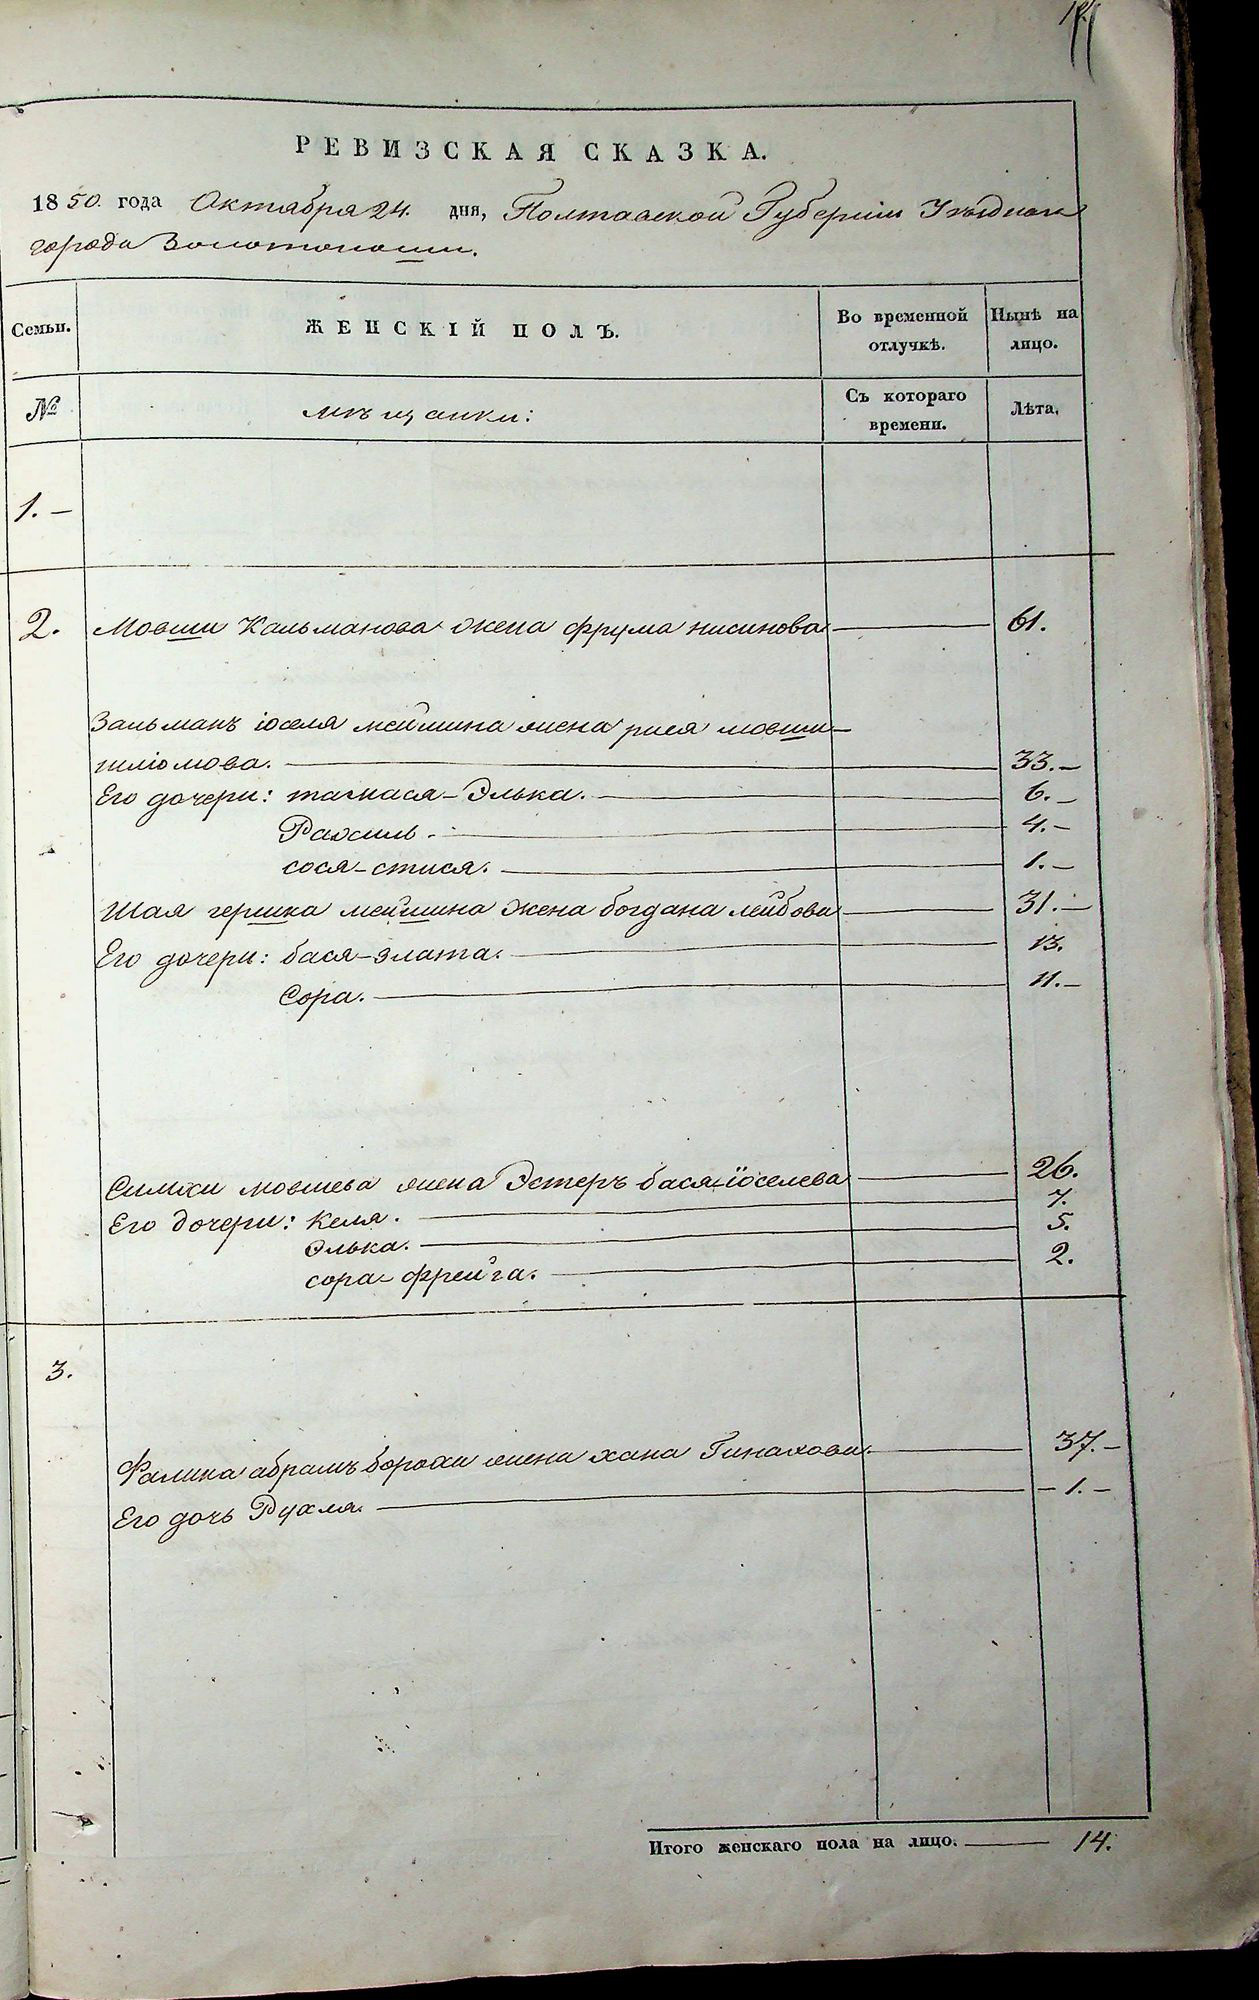 РЕВИЗСКАЯ СКАЗКА.
1850. года Октября 24. дня, Полтавской Губерніи Уѣзднаго
города Золотоноши.
Семьи.
ЖЕНСКІЙ ПОЛЪ.
Во временной отлучкѣ.
Нынѣ на лицо.
№
мѣщанки:
Съ котораго времени.
Лѣта.
1.–
2. Мовши Кальманова жена фрума нисинова 61.
Зальманъ іоселя мейшина жена рися мовши–
шліомова. 33.–
Его дочери: Элька. 6.–
Рахиль. 4.–
сося–стися. 1.–
Шая гершка мейшина жена богдана лейбова 31.–
Его дочери: бася–злата. 13.
Сора. 11.–
Симхи мовшева жена Эстеръ бася–іоселева 26.
Его дочери: Келя. 7.
Элька. 5.
сора–фрейга. 2.
3.
Фалика абрамъ бороха жена хана Гинахова. 37.–
Его дочь Рухля. –1.–
Итого женскаго пола на лицо. 14.